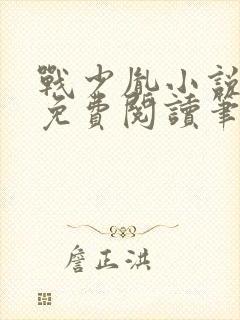 戰少胤小說
免費閱讀筆
詹正洪